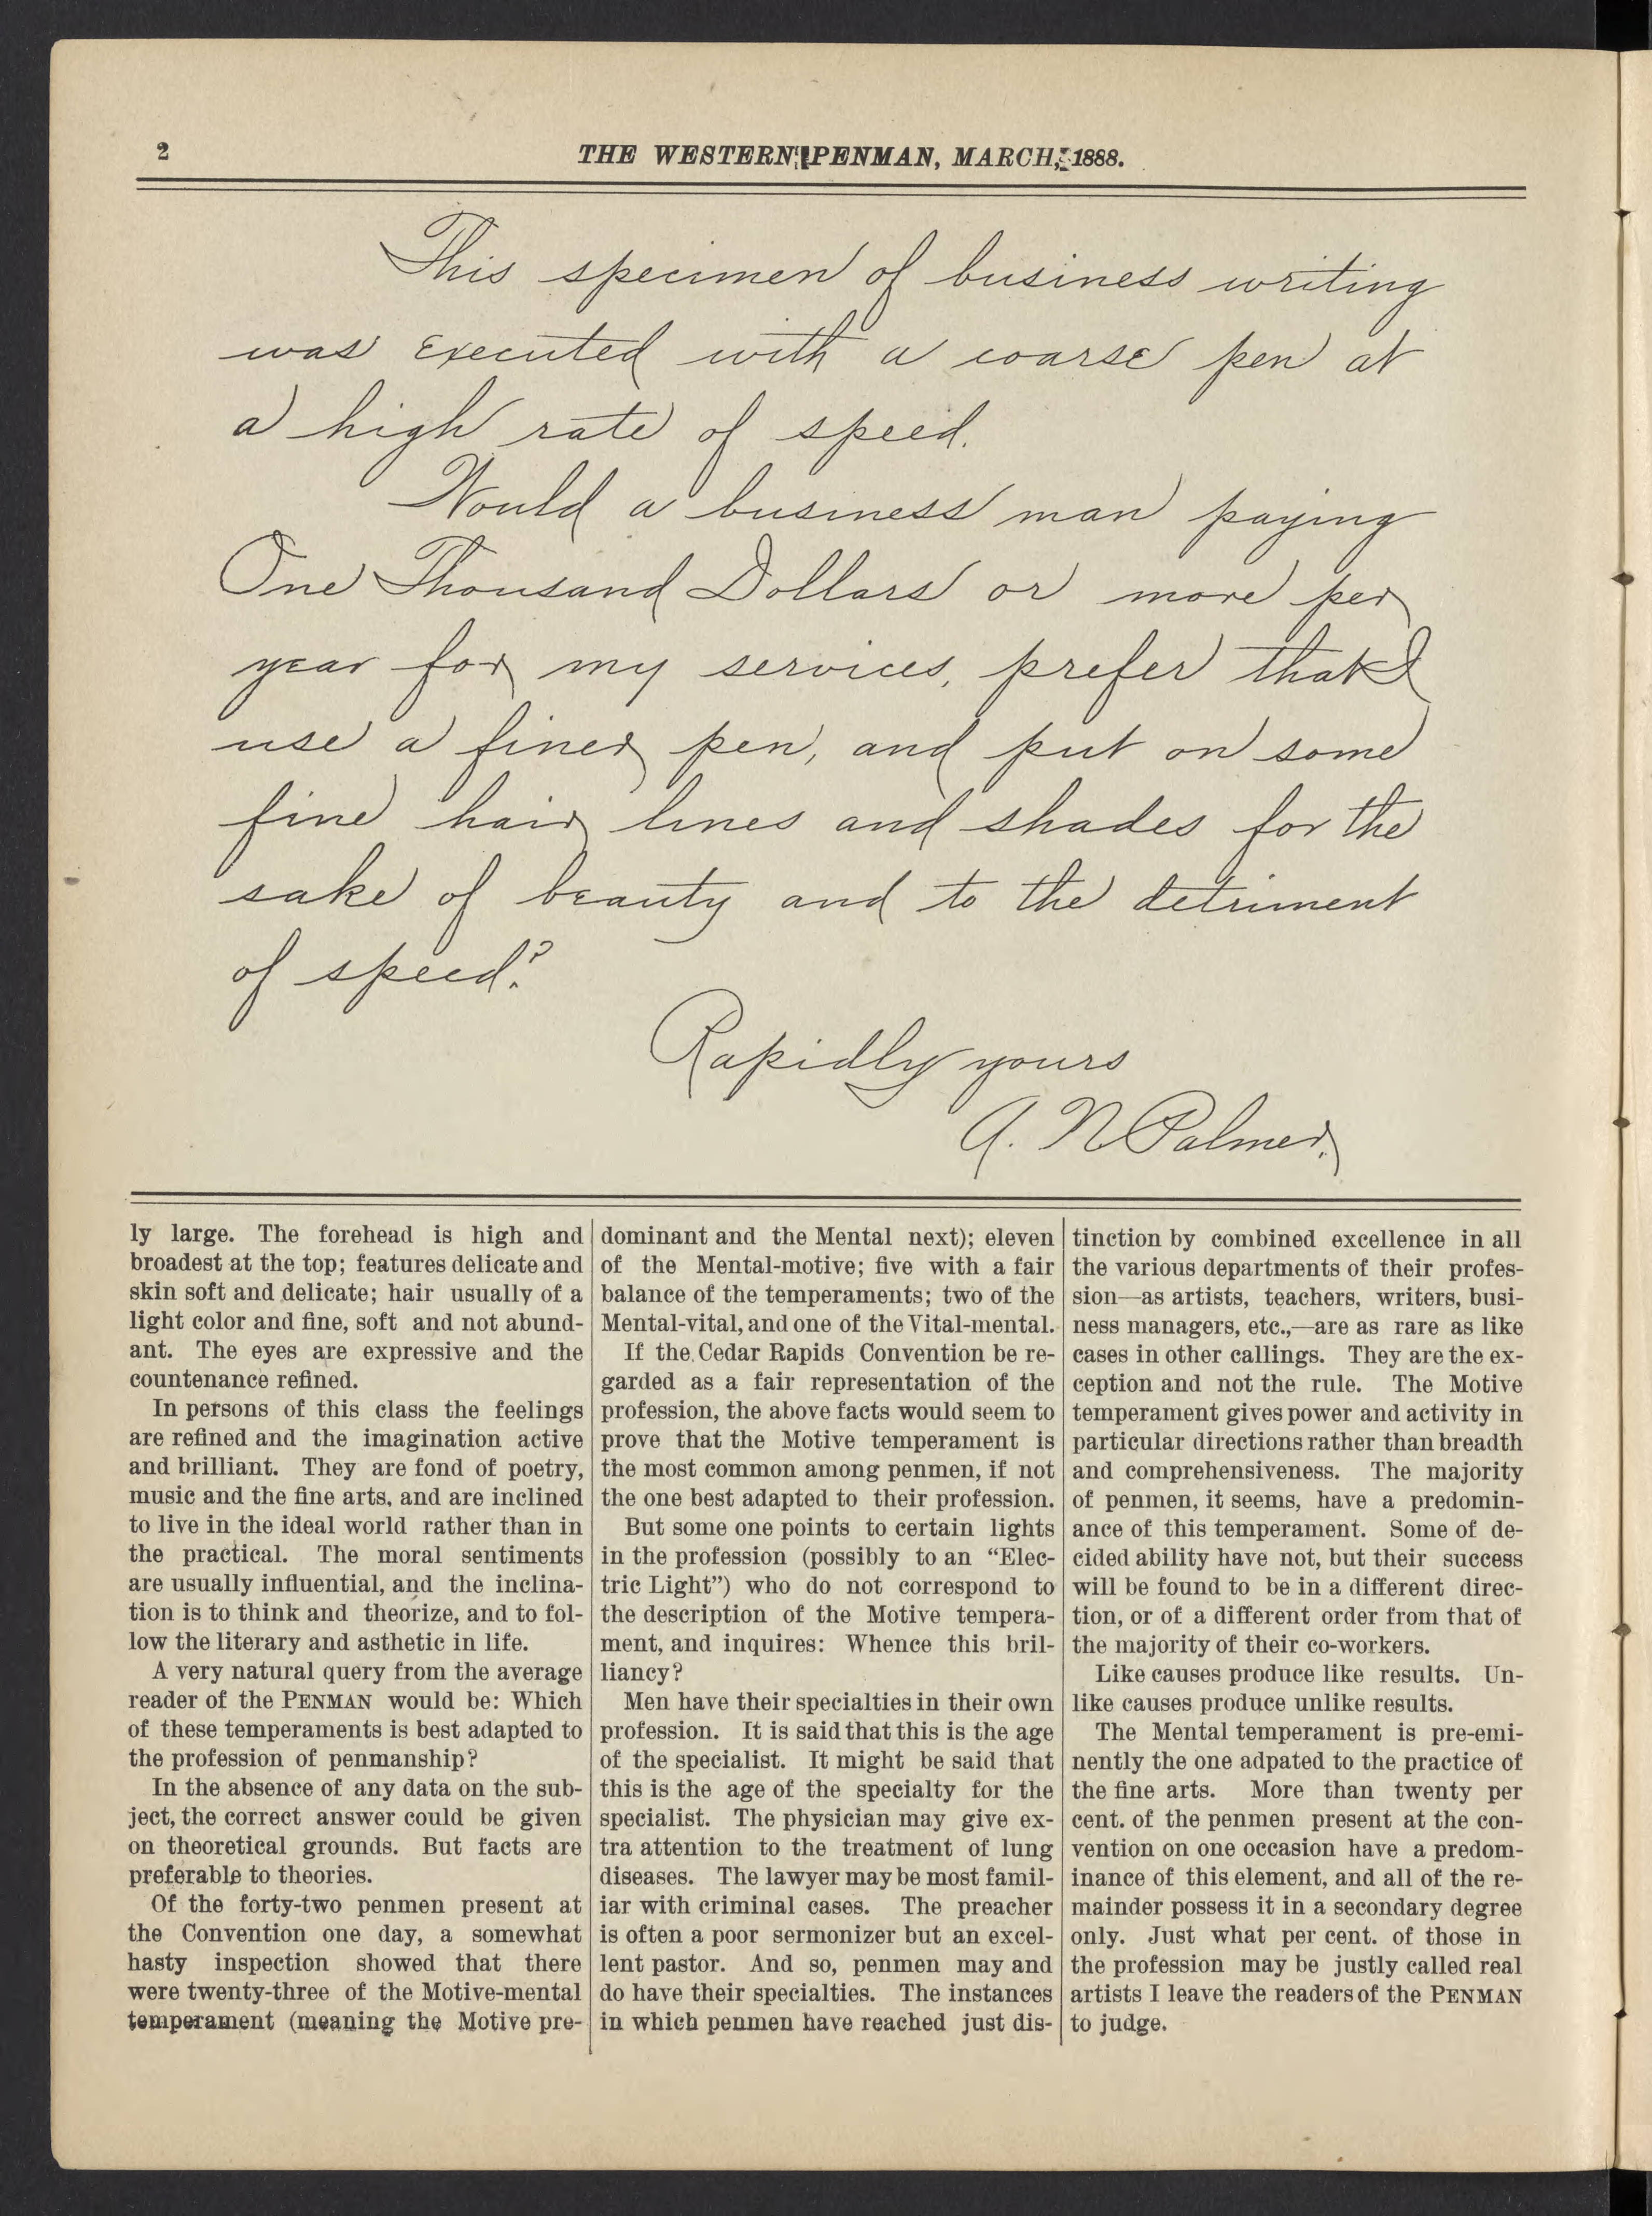 2
THE WESTERN PENMAN, MARCH, 1888.
This specimen of business writing
was executed with a coarse pen at
a high rate of speed.
Would a business man paying
One Thousand Dollars or more per
year for my services, prefer that I
use a finer pen, and put on some
fine hair lines and shades for the
sake of beauty and to the detriment
of speed?
Rapidly yours
A. N. Palmer.
ly large. The forehead is high and
broadest at the top; features delicate and
skin soft and delicate; hair usually of a
light color and fine, soft and not abund-
ant. The eyes are expressive and the
countenance refined.
In persons of this class the feelings
are refined and the imagination active
and brilliant. They are fond of poetry,
music and the fine arts, and are inclined
to live in the ideal world rather than in
the practical. The moral sentiments
are usually influential, and the inclina-
tion is to think and theorize, and to fol-
low the literary and asthetic in life.
A very natural query from the average
reader of the PENMAN would be: Which
of these temperaments is best adapted to
the profession of penmanship?
In the absence of any data on the sub-
ject, the correct answer could be given
on theoretical grounds. But facts are
preferable to theories.
Of the forty-two penmen present at
the Convention one day, a somewhat
hasty inspection showed that there
were twenty-three of the Motive-mental
temperament (meaning the Motive pre-
dominant and the Mental next); eleven
of the Mental-motive; five with a fair
balance of the temperaments; two of the
Mental-vital, and one of the Vital-mental.
If the Cedar Rapids Convention be re-
garded as a fair representation of the
profession, the above facts would seem to
prove that the Motive temperament is
the most common among penmen, if not
the one best adapted to their profession.
But some one points to certain lights
in the profession (possibly to an “Elec-
tric Light”) who do not correspond to
the description of the Motive tempera-
ment, and inquires: Whence this bril-
liancy?
Men have their specialties in their own
profession. It is said that this is the age
of the specialist. It might be said that
this is the age of the specialty for the
specialist. The physician may give ex-
tra attention to the treatment of lung
diseases. The lawyer may be most famil-
iar with criminal cases. The preacher
is often a poor sermonizer but an excel-
lent pastor. And so, penmen may and
do have their specialties. The instances
in which penmen have reached just dis-
tinction by combined excellence in all
the various departments of their profes-
sion—as artists, teachers, writers, busi-
ness managers, etc.,—are as rare as like
cases in other callings. They are the ex-
ception and not the rule. The Motive
temperament gives power and activity in
particular directions rather than breadth
and comprehensiveness. The majority
of penmen, it seems, have a predomin-
ance of this temperament. Some of de-
cided ability have not, but their success
will be found to be in a different direc-
tion, or of a different order from that of
the majority of their co-workers.
Like causes produce like results. Un-
like causes produce unlike results.
The Mental temperament is pre-emi-
nently the one adpated to the practice of
the fine arts. More than twenty per
cent. of the penmen present at the con-
vention on one occasion have a predom-
inance of this element, and all of the re-
mainder possess it in a secondary degree
only. Just what per cent. of those in
the profession may be justly called real
artists I leave the readers of the PENMAN
to judge.